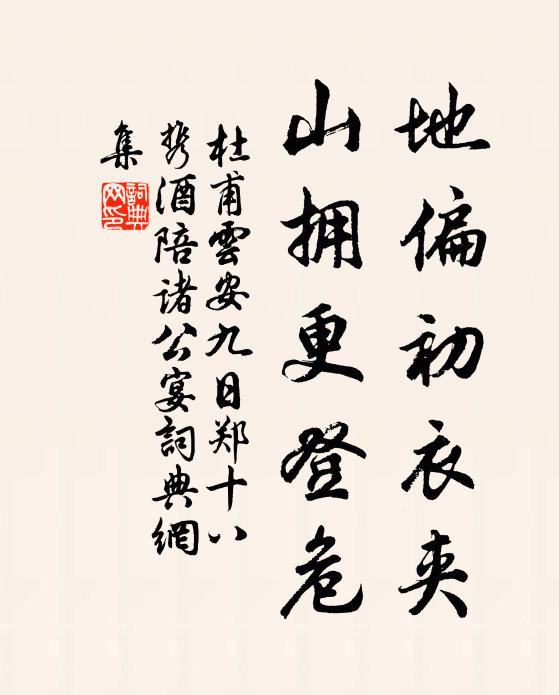 地偏初衣夹
山拥更登危
杜甫雲安九日郑十八
携酒陪诸公宴詞典網
集
詞典
网印